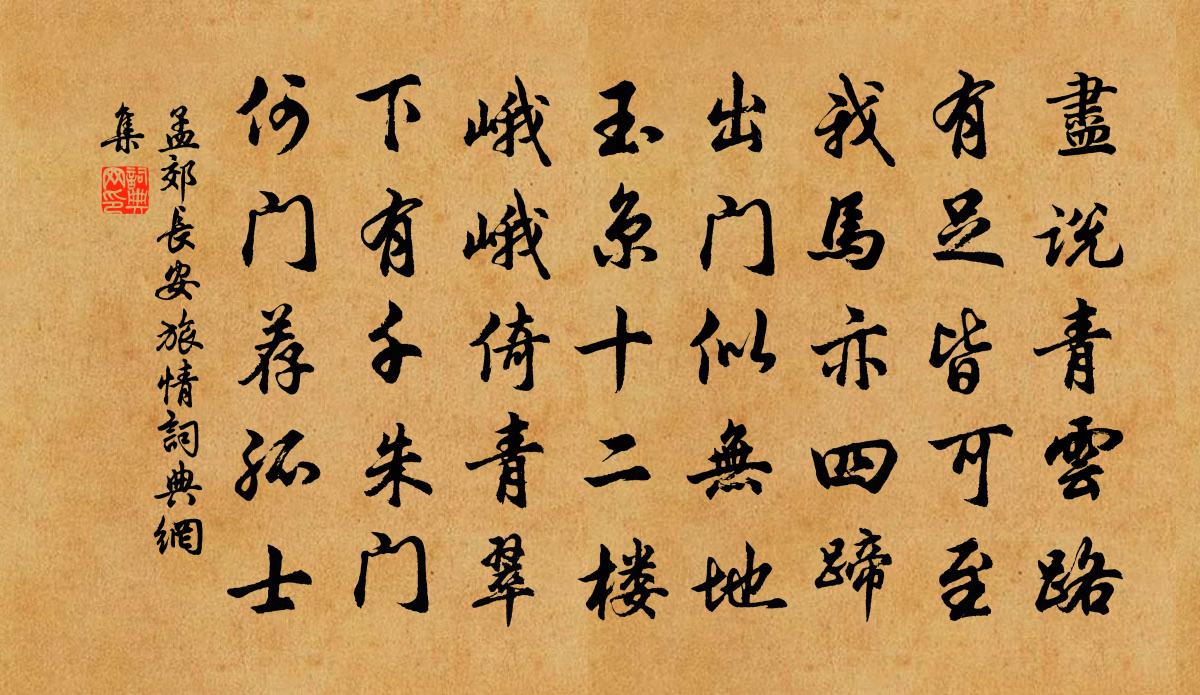 盡説青雲路
有足皆可至
我馬亦四蹄
出门似無地
玉京十二楼
峨峨倚青翠
下有千朱门
何门荐孤士
孟郊長安旅情詞典網
集
詞典
网印